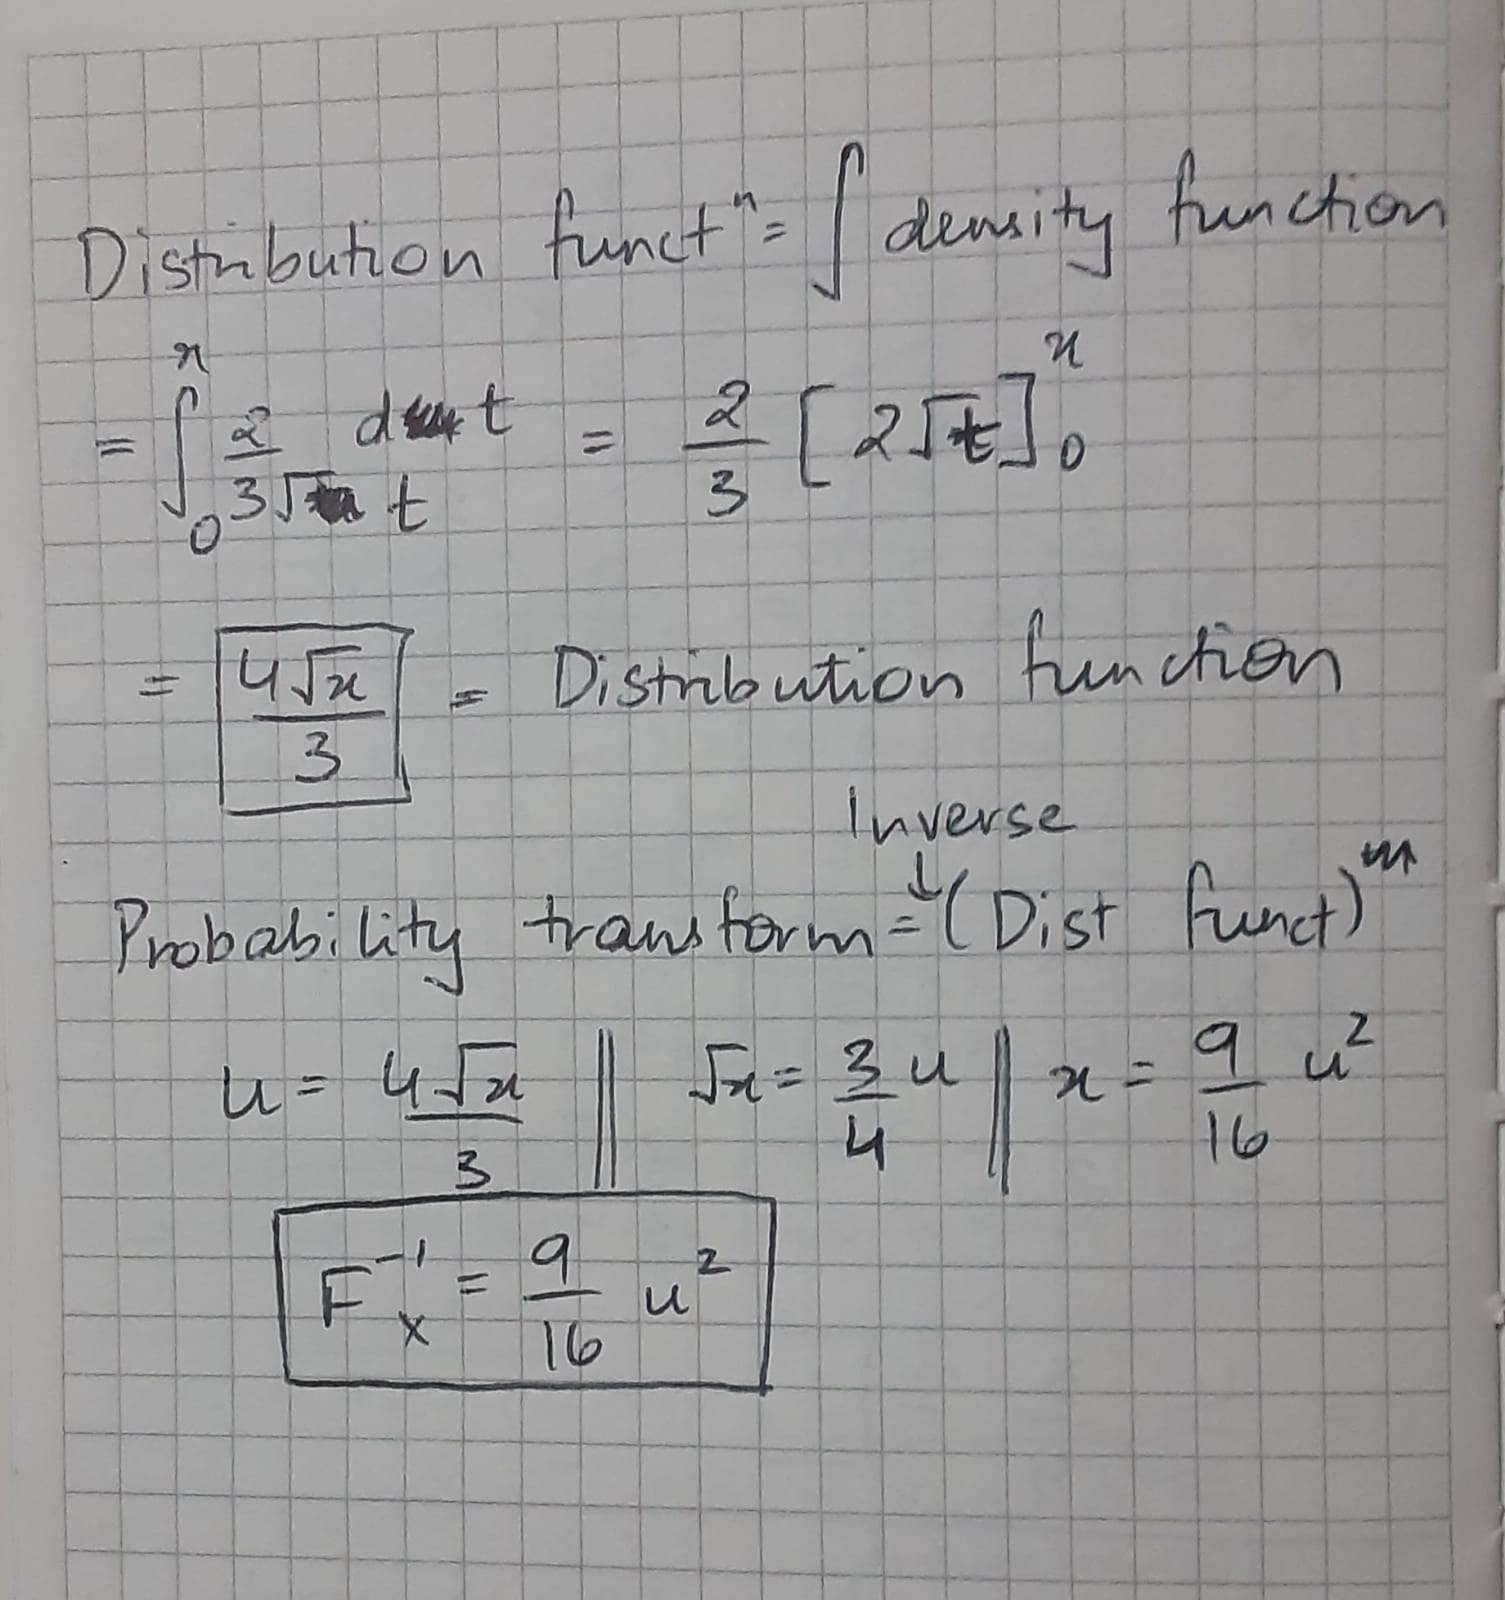 Distribution functⁿ = ∫ density function
= ∫₀ˣ 2/(3√t) dt = 2/3 [2√t]₀ˣ
= 4√x/3 = Distribution function
Inverse
↓
Probability transform = (Dist funct)
u = 4√x/3 || √x = 3/4 u || x = 9/16 u²
F⁻¹ₓ = 9/16 u²